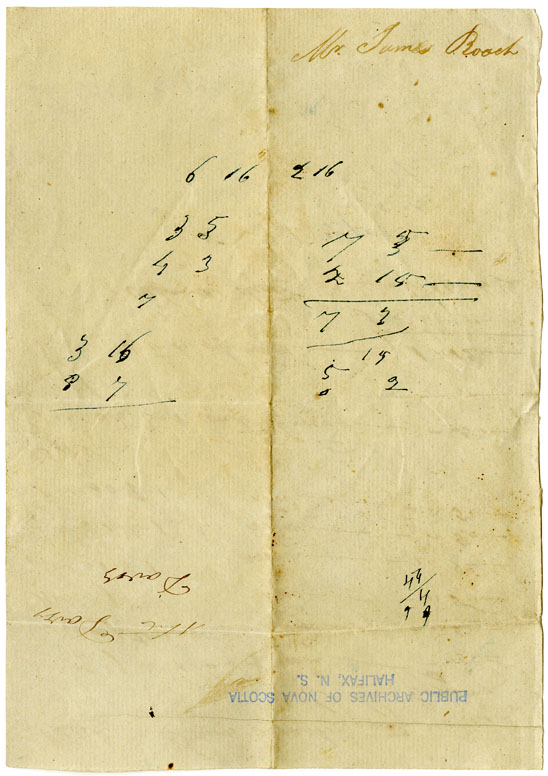 Mr. James Roach
6 16 2 16
3 5
4 3
7
3 16
8 7
7 5
2 15
7 2
15
5 2
Davis
PUBLIC ARCHIVES OF NOVA SCOTIA
HALIFAX, N. S.